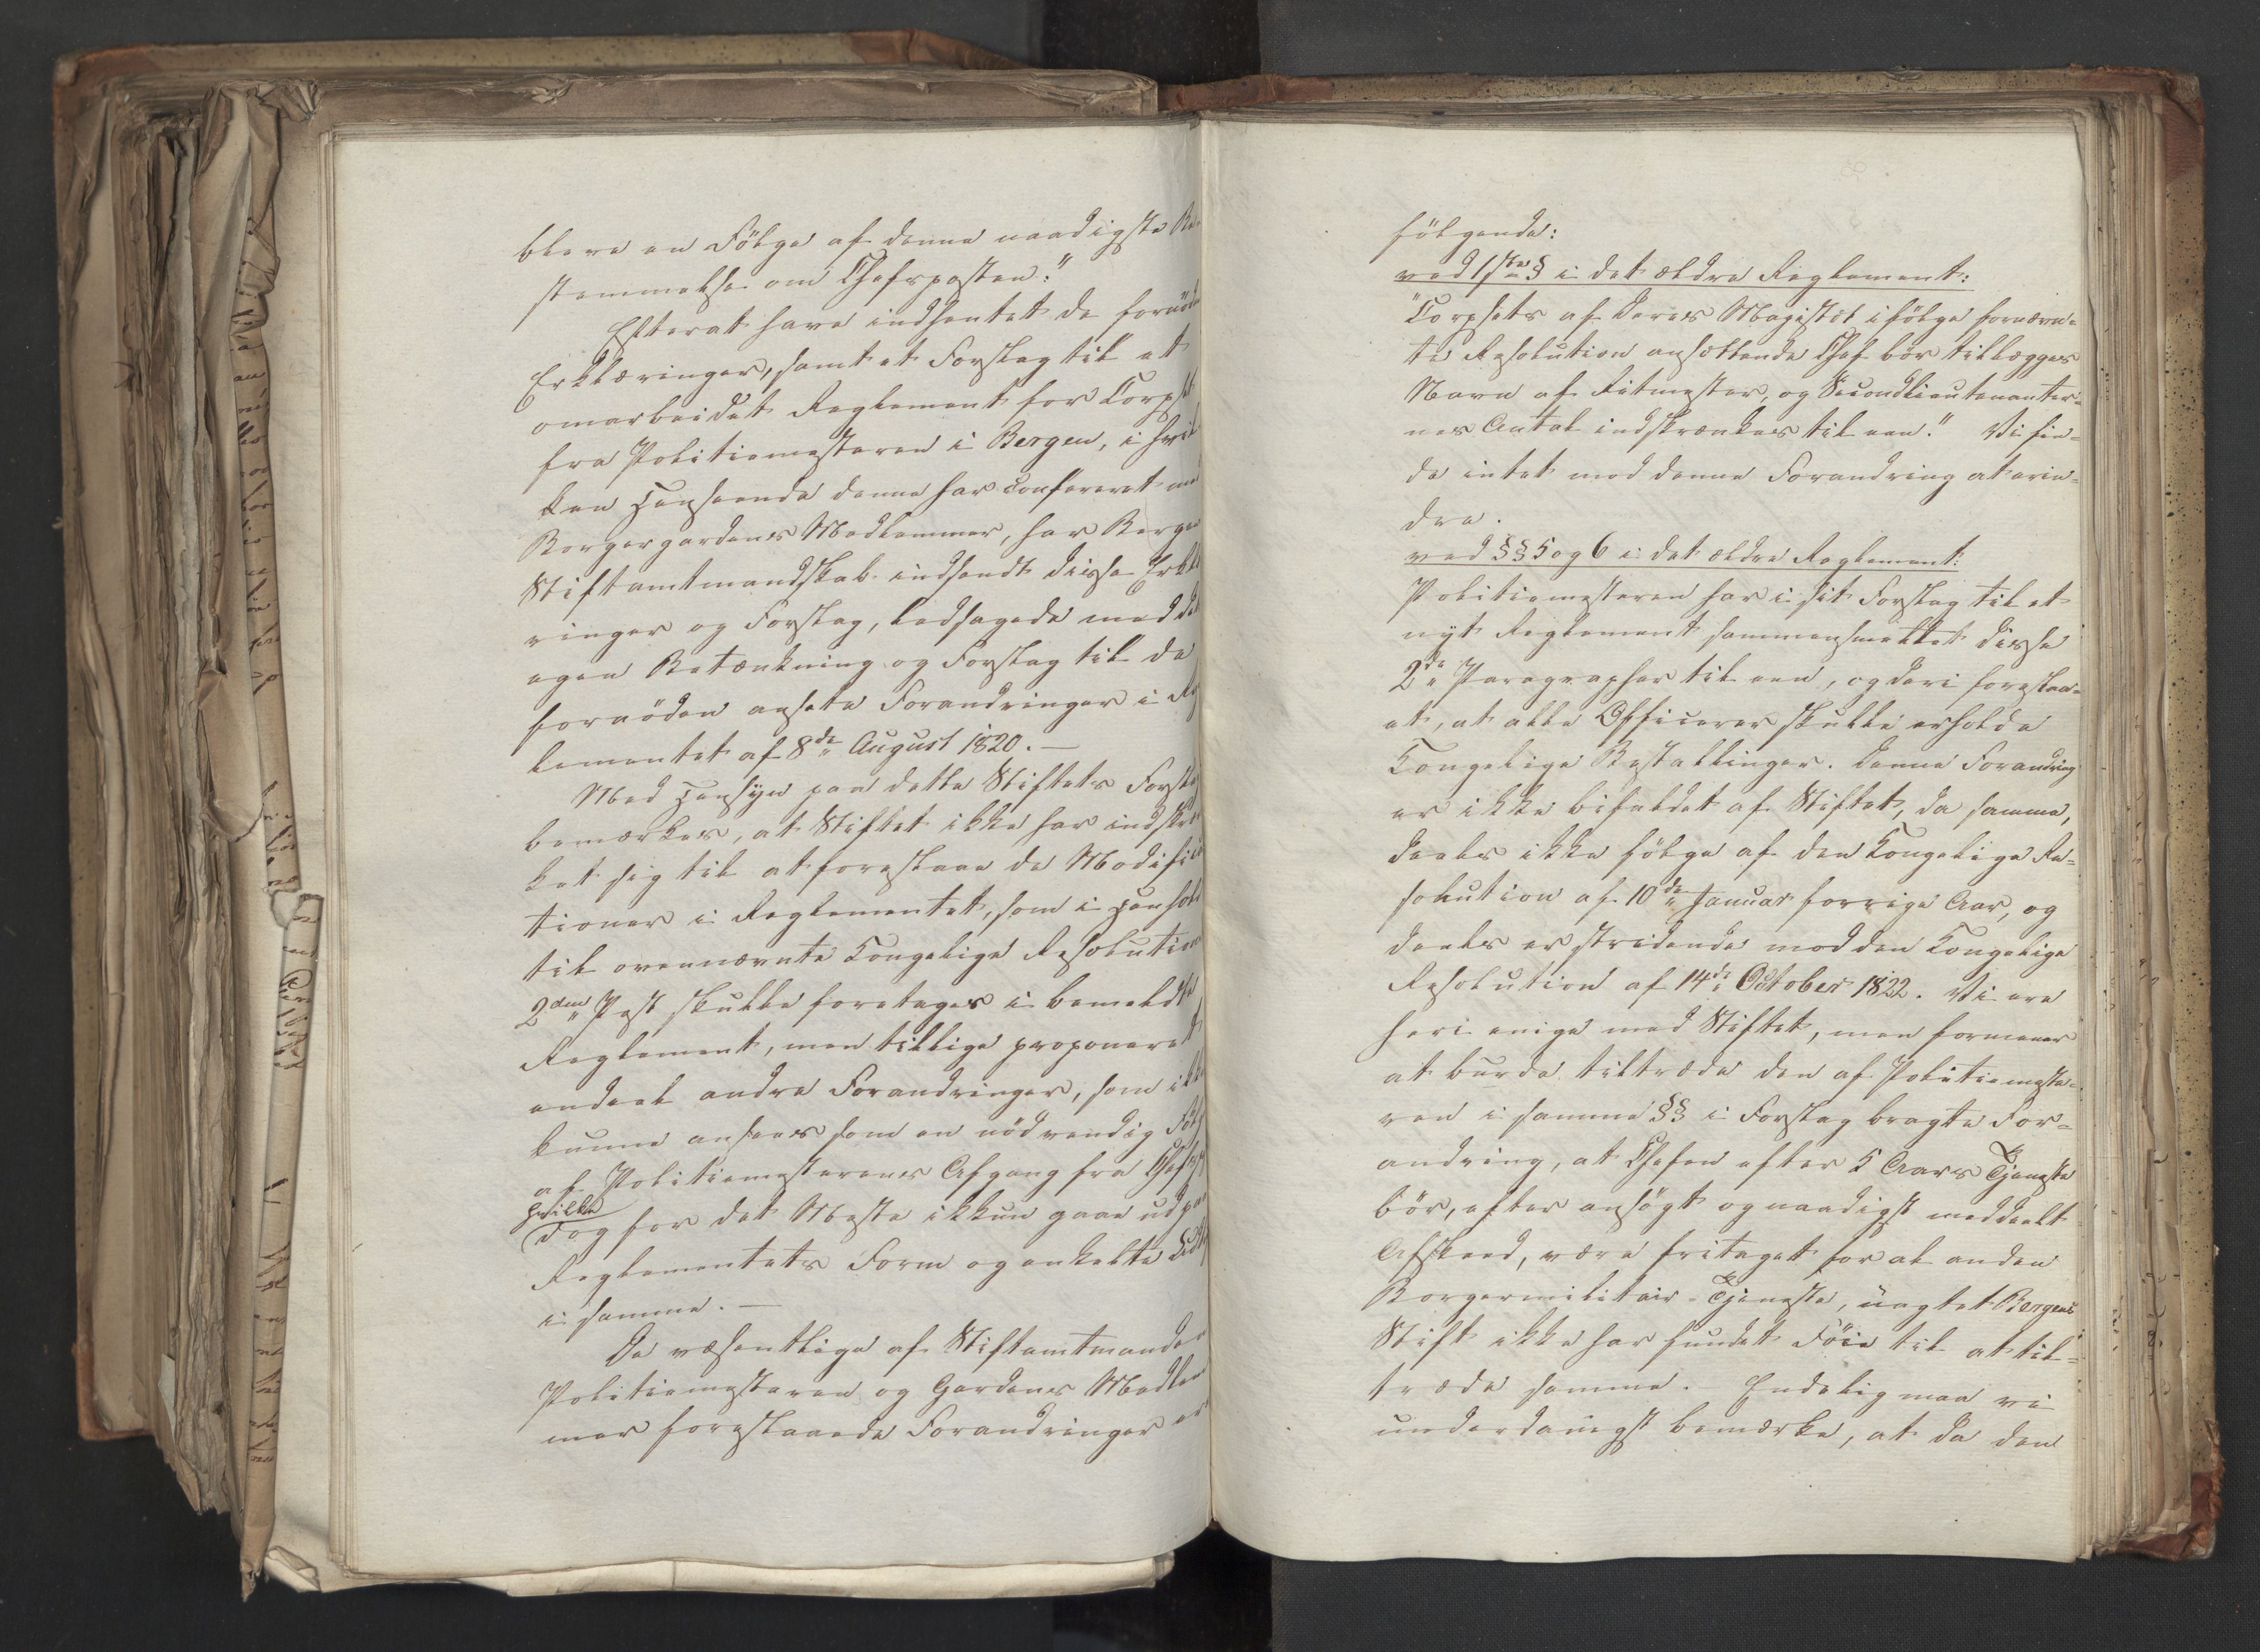 blive en Fölge af denne naadigste Be-
stemmelse om Chefsposten."
Efterat have indhentet de fornödne
Erklæringer, samt et Forslag til et
omarbeidet Reglement for Corpset
fra Politiemesteren i Bergen, i hvil-
ken Henseende denne har confereret med
Borgergardens Medlemmer, har Bergens
Stiftamtmandskab indsendt disse Erklæ-
ringer og Forslag, ledsagede med dets
egen Betænkning og Forslag til de
fornöden ansete Forandringer i Reg-
lementet af 8de August 1820. —
Med Hensyn paa dette Stiftets Forslag
bemærkes, at Stiftet ikke har indskræn-
ket sig til at foreslaae de Modifica-
tioner i Reglementet, som i Henhold
til ovennævnte Kongelige Resolutions
2den Post skulle foretages i bemeldte
Reglement, men tillige proponeret
endeel andre Forandringer, som ikke
kunne ansees som en nödvendig Fölge
af Politiemesterens Afgang fra Chefsp
hvilke
dog for det Meste ikkun gaae ud paa
Reglementets Form og enkelte Udtr
i samme. —
De væsentlige af Stiftamtmanden
Politiemesteren og Gardens Medlem-
mer foreslaaede Forandringer ere
fölgende:
ved 1ste § i det ældre Reglement:
"Corpsets af Deres Majestæt ifölge fornævn-
te Resolution ansættende Chef bör tillægges
Navn af Ritmester, og Secondlieutenanter-
nes Antal indskrænkes til een." Vi fin-
de intet mod denne Forandring at erin-
dre.
ved §§ 5 og 6 i det ældre Reglement:
Politiemesteren har i sit Forslag til et
nyt Reglement sammensmeltet disse
2de Paragrapher til een, og deri foreslaa-
et, at alle Officerer skulle erholde
Kongelige Bestallinger. Denne Forandring
er ikke bifaldet af Stiftet, da samme,
deels ikke fölge af den Kongelige Re-
solution af 10de Januar forrige Aar, og
deels er stridende mod den Kongelige
Resolution af 14de October 1822. Vi ere
heri enige med Stiftet, men formener
at burde tiltræde den af Politiemeste-
ren i samme §§ i Forslag bragte For-
andring, at Chefen efter 5 Aars Tjeneste
bör, efter ansögt og naadigst meddeelt
Afskeed, være fritaget for al anden
Borgermilitair-Tjeneste, uagtet Bergens
Stift ikke har fundet Föie til at til-
træde samme. Endelig maa vi
underdanigst bemærke, at da den